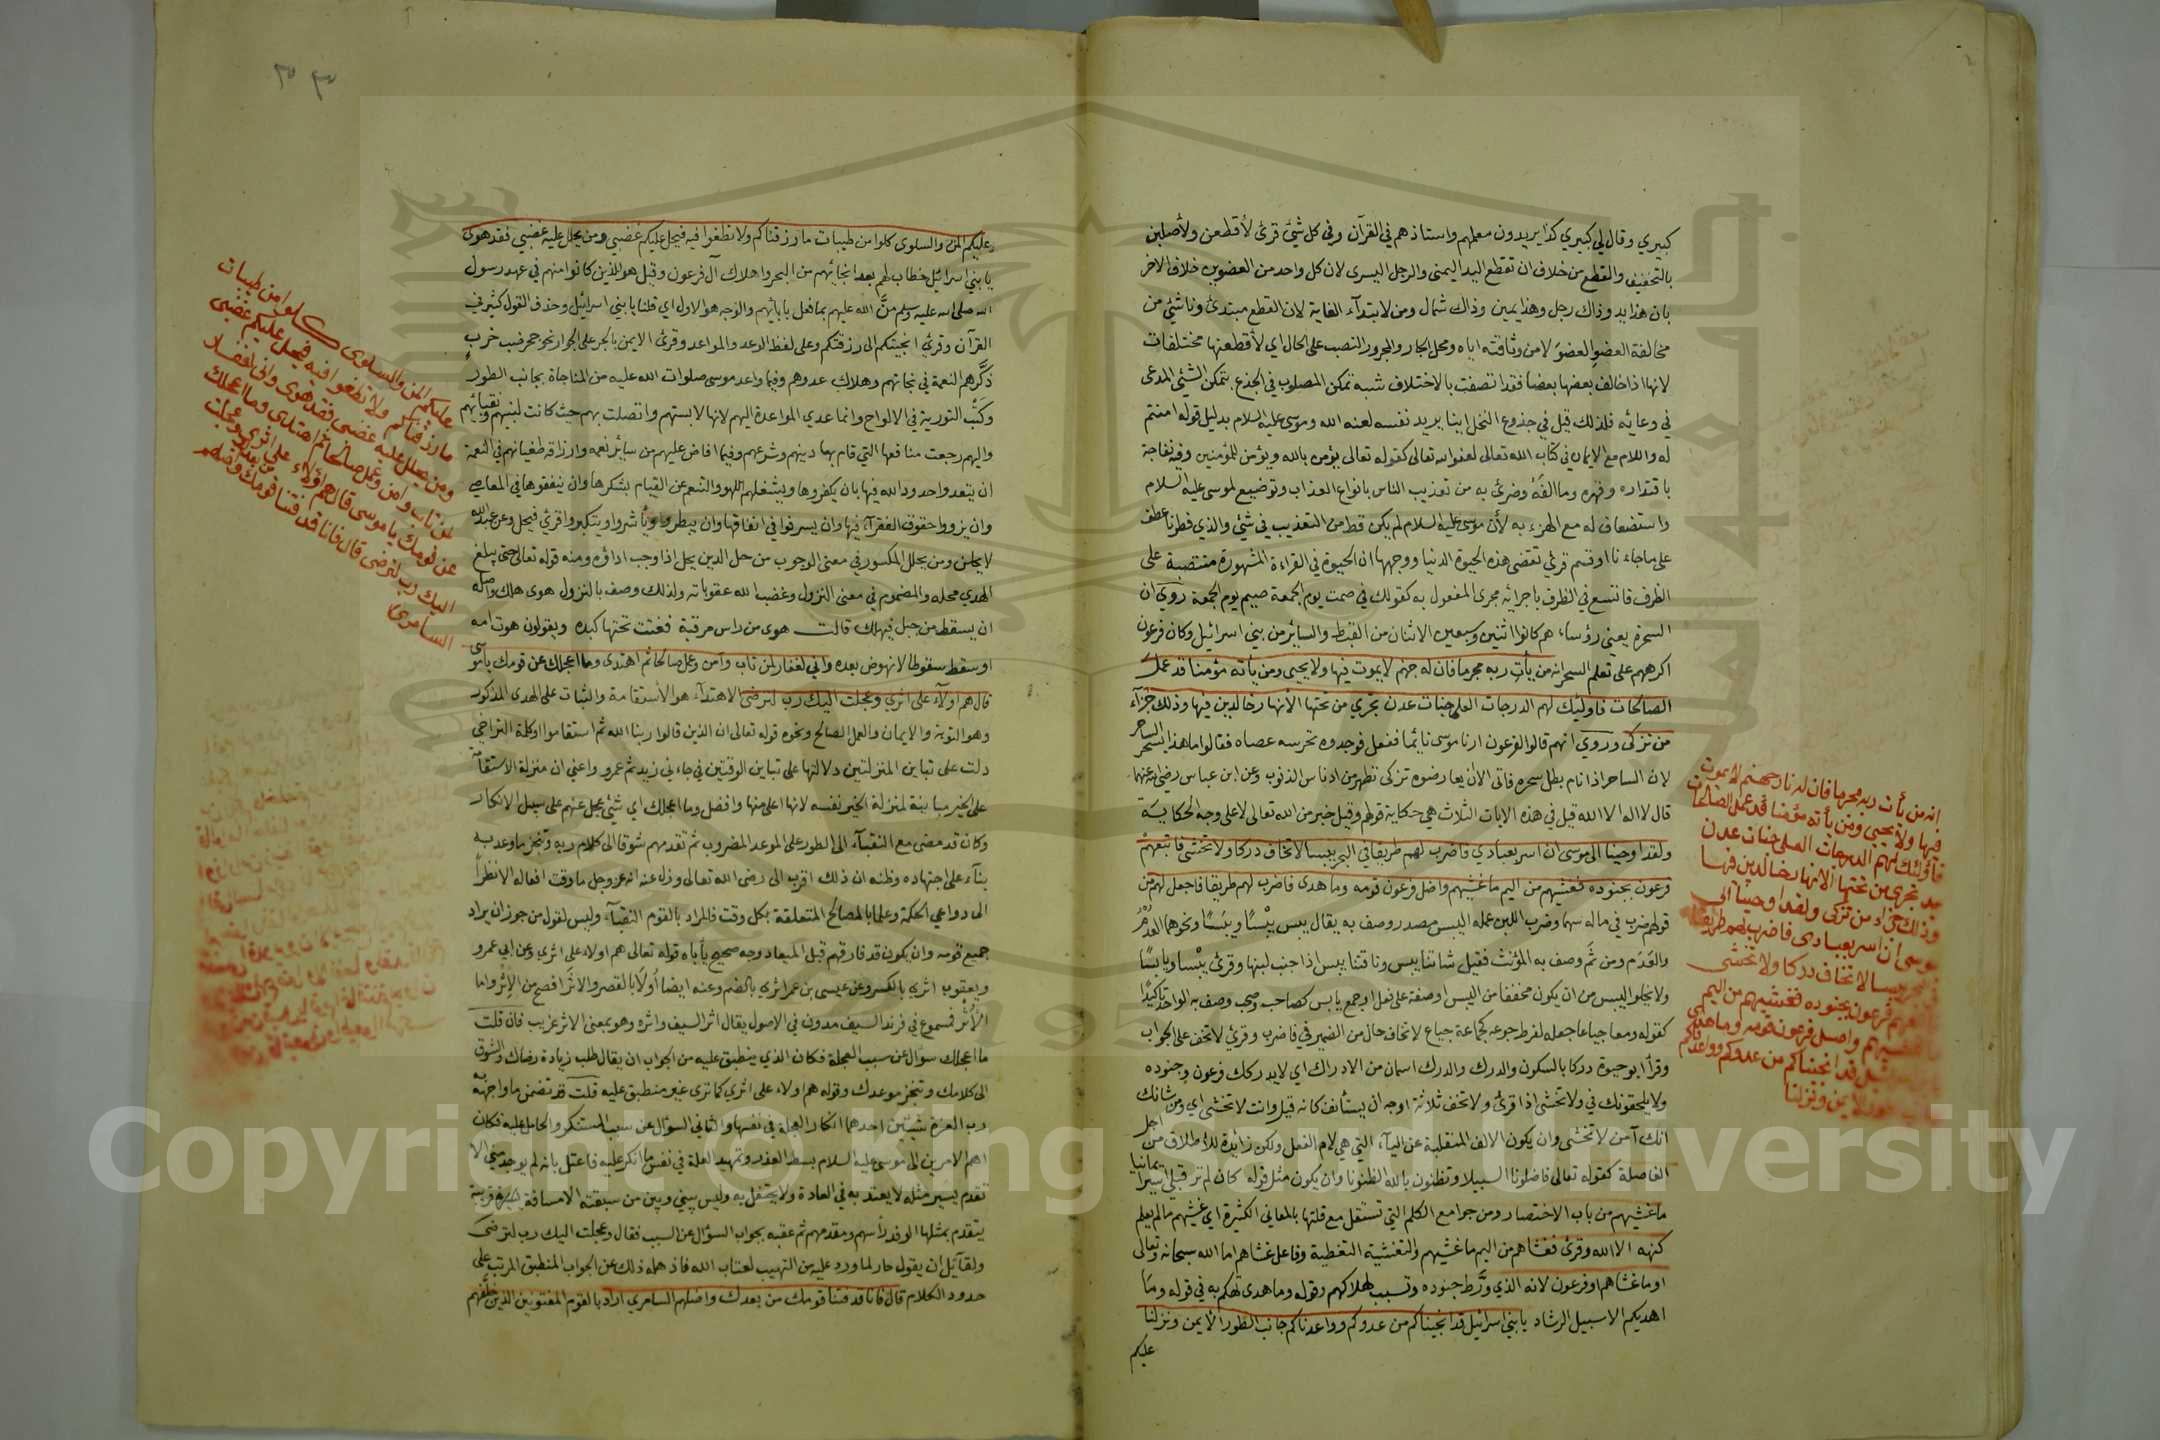 كبيري وقال لي كبيري كذا يريدون معلمهم واستاذهم في القرآن وفي كل شيئ قرئ لأقطعن ولأصلبن
بالتخفيف والقطع من خلاف ان تقطع اليد اليمنى والرجل اليسرى لان كل واحد من العضوين خلاف الاخر
بان هذا يد وذاك رجل وهذا يمين وذاك شمال ومن لابتدآء الغاية لان القطع مبتدئ وناشئ من
مخالفة العضو العضو لا من وفاقته اياه ومحل الجار والمجرور النصب على الحال اي لأقطعنها مختلفات
لانها اذا خالف بعضها بعضا فقد اتصفت بالاختلاف شبه تمكن المصلوب في الجذع بتمكن الشيئ المدعى
في وعائه فلذلك قيل في جذوع النخل اينا يريد نفسه لعنه الله وموسى عليه السلام بدليل قوله امنتم
له واللام مع الايمان في كتاب الله تعالى لغير الله تعالى كقوله تعالى يؤمن بالله ويؤمن للمؤمنين وفيه نفاجة
باقتداره وقهره وما الفه وضرئ به من تعذيب الناس بانواع العذاب وتوضيع لموسى عليه السلام
واستضعاف له مع الهزء به لأن موسى عليه السلام لم يكن قط من التعذيب في شئي والذي فطرنا عطف
على ما جاءنا او قسم قرئ تقضى هذه الحيوة الدنيا ووجهها ان الحيوة في القراءة المشهورة منتصبة على
الظرف فاتسع في الظرف باجرائه مجرى المفعول به كقولك في صمت يوم الجمعة صيم يوم الجمعة روي ان
السحرة يعني رؤساءهم كانوا اثنين وسبعين الاثنان من القبط والسائر من بني اسرائيل وكان فرعون
اكرههم على تعلم السحر انه من يأت ربه مجرما فان له جهنم لا يموت فيها ولا يحيى ومن يأته مؤمنا قد عمل
الصالحات فاولئك لهم الدرجات العلى جنات عدن تجري من تحتها الأنهار خالدين فيها وذلك جزآء
من تزكى وروي انهم قالوا لفرعون ارنا موسى نائما ففعل فوجدوه تحرسه عصاه فقالوا ما هذا بسحر الساحر
لان الساحر اذا نام بطل سحره فابى الا ان يعارضوه تزكى تطهر من ادناس الذنوب وعن ابن عباس رضي الله عنهما
قال لا اله الا الله قيل في هذه الايات الثلاث هي حكاية قولهم وقيل خبر من الله تعالى لا على وجه الحكاية
ولقد اوحينا الى موسى ان اسر بعبادي فاضرب لهم طريقا في البحر يبسا لا تخاف دركا ولا تخشى فاتبعهم
فرعون بجنوده فغشيهم من اليم ما غشيهم واضل فرعون قومه وما هدى فاضرب لهم طريقا فاجعل لهم من
قولهم ضرب في ماله سهما وضرب اللبن عمله اليبس مصدر وصف به يقال يبس يبسا ويبسا ونحوهما العدم
والعدم ومن ثم وصف به المؤنث فقيل شاتنا يبس وناقتنا يبس اذا جف لبنها وقرئ يبسا ويابسا
ولا يخلو اليبس من ان يكون مخففا من اليبس او صفة على فعل او جمع يابس كصاحب وصحب وصف به الواحد تأكيدا
كقوله ومعا جياعا جعله لفرط جوعه كجماعة جياع لا تخاف حال من الضمير في فاضرب وقرئ لا تخف على الجواب
وقرأ ابو حيوة دركا بالسكون والدرك والدرك اسمان من الادراك اي لا يدركك فرعون وجنوده
ولا يلحقونك في ولا تخشى اذا قرئ ولا تخف ثلاثة اوجه ان يستأنف كانه قيل وانت لا تخشى اي ومن شانك
انك آمن لا تخشى وان يكون الالف المنقلبة عن الياء التي هي لام الفعل ولكن زائدة للاطلاق من اجل
الفاصلة كقوله تعالى فاضلونا السبيلا وتظنون بالله الظنونا وان يكون مثل قوله كان لم تر قبلي اسيرا يمانيا
ما غشيهم من باب الاختصار ومن جوامع الكلم التي تستقل مع قلتها بالمعاني الكثيرة اي غشيهم ما لم يعلم
كنهه الا الله وقرئ فغشاهم من اليم ما غشيهم والتغشية التغطية وفاعل غشاهم اما الله سبحانه وتعالى
او ما غشاهم او فرعون لانه الذي ورط جنوده وتسبب لهلاكهم وقوله وما هدى تهكم به في قوله وما
اهديكم الا سبيل الرشاد يا بني اسرائيل قد انجيناكم من عدوكم وواعدناكم جانب الطور الأيمن ونزلنا
عليكم
انه من يأت ربه مجرما فان له نار جهنم لا يموت
فيها ولا يحيى ومن يأته مؤمنا قد عمل الصالحات
فأولئك لهم الدرجات العلى جنات عدن
تجري من تحتها الانهار خالدين فيها
وذلك جزاء من تزكى ولقد اوحينا الى
موسى ان اسر بعبادي فاضرب لهم طريقا
يبسا لا تخاف دركا ولا تخشى
فرعون بجنوده فغشيهم من اليم
واضل فرعون قومه وما هدى
قد انجيناكم من عدوكم وواعدناكم
الايمن ونزلنا
٣٠٣
عليكم المن والسلوى كلوا من طيبات ما رزقناكم ولا تطغوا فيه فيحل عليكم غضبي ومن يحلل عليه غضبي فقد هوى
يا بني اسرائيل خطاب لهم بعد انجائهم من البحر واهلاك آل فرعون وقيل هو للذين كانوا منهم في عهد رسول
الله صلى الله عليه وسلم من الله عليهم بما فعل بابائهم والوجه هو الاول اي قلنا يا بني اسرائيل وحذف القول كثير في
القرآن وقرئ انجيتكم الى رزقتكم وعلى لفظ الوعد والمواعد وقرئ الايمن بالجر على الجوار نحو جحر ضب خرب
ذكرهم النعمة في نجاتهم وهلاك عدوهم وفيما واعد موسى صلوات الله عليه من المناجاة بجانب الطور
وكتب التورية في الالواح وانما عدي المواعدة اليهم لانها لابستهم واتصلت بهم حيث كانت لنبيهم ونقبائهم
واليهم رجعت منافعها التي قام بها دينهم وشرعهم وفيما افاض عليهم من سائر نعمه وارزاقه طغيانهم في النعمة
ان يتعدوا حدود الله فيها بان يكفروها ويشغلهم اللهو والتنعم عن القيام بشكرها وان ينفقوها في المعاصي
وان يزووا حقوق الفقرآء فيها وان يسرفوا في انفاقها وان يبطروا ويأشروا ويتكبروا قرئ فيحل وعن عبد الله
لا يحلن ومن يحلل المكسور في معنى الوجوب من حل الدين يحل اذا وجب اداؤه ومنه قوله تعالى حتى يبلغ
الهدي محله والمضموم في معنى النزول وغضب الله عقوباته ولذلك وصف بالنزول هوى هلك واصله
ان يسقط من جبل فيهلك قالت هوى من راس مرقبة ففتت تحتها كبده ويقولون هوت امه
او سقط سقوطا لا نهوض بعده واني لغفار لمن تاب وآمن وعمل صالحا ثم اهتدى وما اعجلك عن قومك يا موسى
قال هم اولآء على اثري وعجلت اليك رب لترضى الاهتدآء هو الأستقامة والثبات على الهدى المذكور
وهو التوبة والايمان والعمل الصالح ونحوه قوله تعالى ان الذين قالوا ربنا الله ثم استقاموا وكلمة التراخي
دلت على تباين المنزلتين دلالتها على تباين الوقتين في جاءني زيد ثم عمرو واعني ان منزلة الاستقامة
على الخير مباينة لمنزلة الخير نفسه لانها اعلى منها وافضل وما اعجلك اي شيئ عجل عنهم على سبيل الانكار
وكان قد مضى مع النقبآء الى الطور على الموعد المضروب ثم تقدمهم شوقا الى كلام ربه وتنجز ما وعد به
بنآء على اجتهاده وظنه ان ذلك اقرب الى رضى الله تعالى وزل عنه انه عز وجل ما وقت افعاله الا نظرا
الى دواعي الحكمة وعلما بالمصالح المتعلقة بكل وقت فالمراد بالقوم النقبآء وليس لقول من جوز ان يراد
جميع قومه وان يكون قد فارقهم قبل الميعاد وجه صحيح يأباه قوله تعالى هم اولاء على اثري وعن ابي عمرو
ويعقوب اثري بالكسر وعن عيسى بن عمر اثري بالضم وعنه ايضا أولا بالقصر والاثر افصح من الإثر واما
الأثر فمسموع في فرند السيف مدون في الاصول يقال اثر السيف واثره وهو بمعنى الاثر غريب فان قلت
ما اعجلك سؤال عن سبب العجلة فكان الذي ينطبق عليه من الجواب ان يقال طلب زيادة رضاك والشوق
الى كلامك وتنجز موعدك وقوله هم اولاء على اثري كما ترى غير منطبق عليه قلت قد تضمن ما واجهه به
رب العزة شيئين احدهما انكار العجلة في نفسها والثاني السؤال عن سبب المستنكر والحامل عليه فكان
اهم الامرين الى موسى عليه السلام بسط العذر وتمهيد العلة في نفس ما انكر عليه فاعتل بانه لم يوجد مني الا
تقدم يسير مثله لا يعتد به في العادة ولا يحتفل به وليس بيني وبين من سبقته الا مسافة قريبة
يتقدم بمثلها الوفد رأسهم ومقدمهم ثم عقبه بجواب السؤال عن السبب فقال وعجلت اليك رب لترضى
ولقآئل ان يقول حار لما ورد عليه من التهيب لعتاب الله فاذهله ذلك عن الجواب المنطبق المرتب على
حدود الكلام قال فانا قد فتنا قومك من بعدك واضلهم السامري اراد بالقوم المفتونين الذين خلفهم
عليكم المن والسلوى كلوا من طيبات
ما رزقناكم ولا تطغوا فيه فيحل عليكم غضبي
ومن يحلل عليه غضبي فقد هوى واني لغفار
لمن تاب وامن وعمل صالحا ثم اهتدى وما اعجلك
عن قومك يا موسى قال هم اولاء على اثري وعجلت
اليك رب لترضى قال فانا قد فتنا قومك من بعدك واضلهم
السامري
Copyright © King Saud University
1957